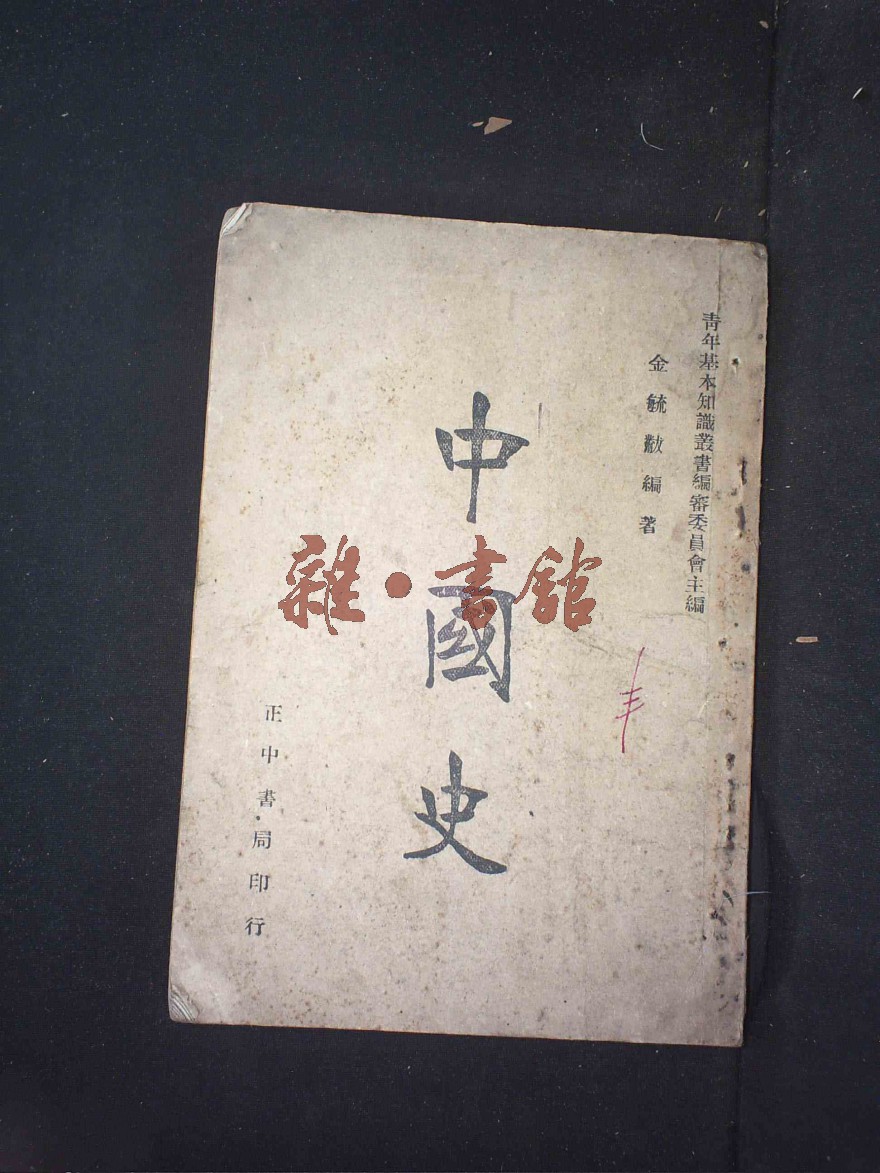 青年基本知識叢書編審委員會主編
金毓黻編著
中國史
正中書局印行
雜·書館